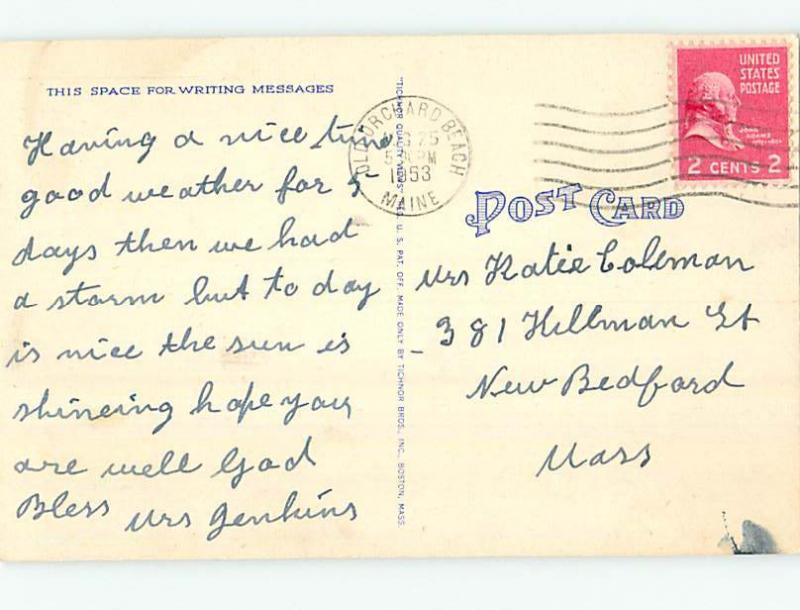 THIS SPACE FOR WRITING MESSAGES
Having a nice time
good weather for 5
days then we had
a storm but to day
is nice the sun is
shineing hope you
are well God
Bless Mrs Jenkins
"TICHNOR QUALITY VIEWS" REG. U. S. PAT. OFF. MADE ONLY BY TICHNOR BROS., INC., BOSTON, MASS.
OLD ORCHARD BEACH
25
PM
1953
MAINE
UNITED
STATES
POSTAGE
JOHN
ADAMS
2 CENTS 2
POST CARD
Mrs Katie Coleman
381 Hillman St
New Bedford
Mass